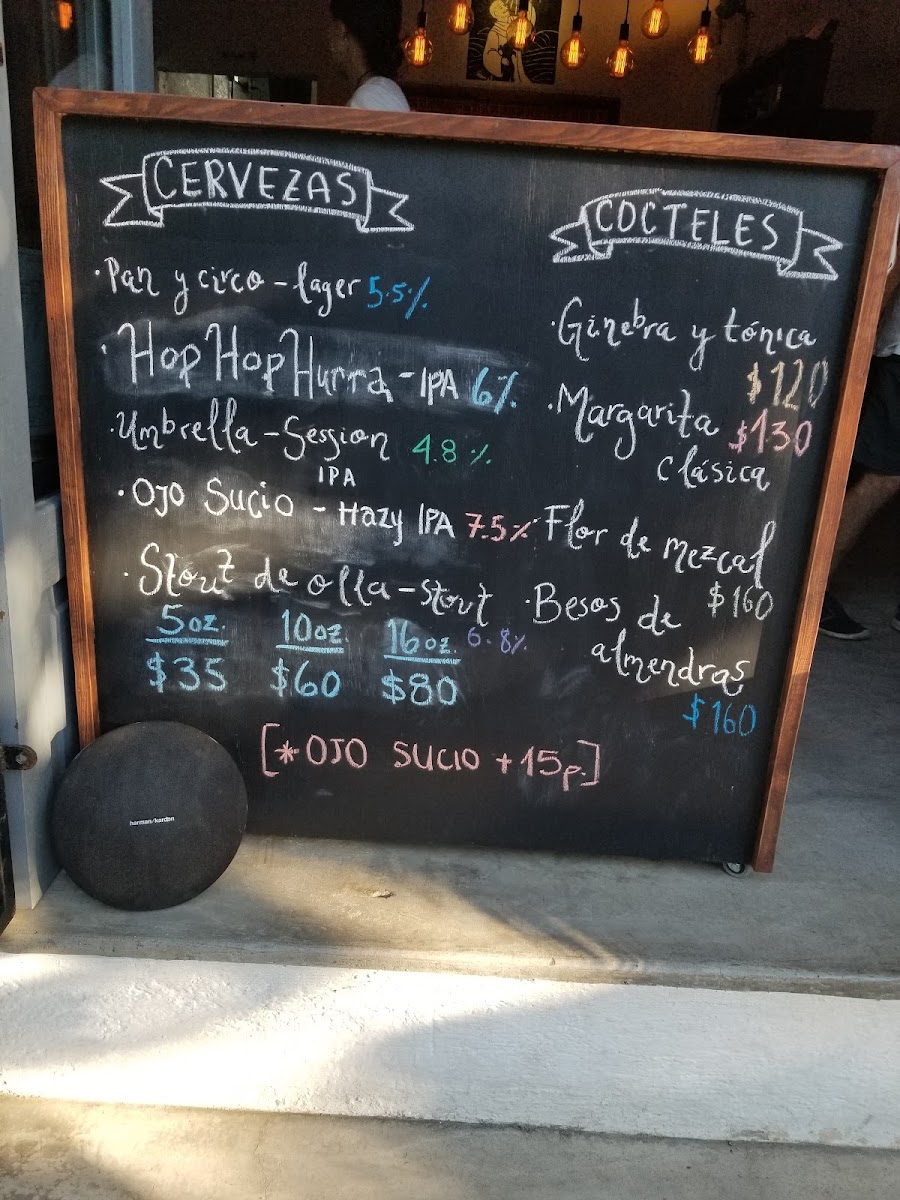 CERVEZAS
· Pan y circo - lager 5.5%
· Hop Hop Hurra - IPA 6%
· Umbrella - Session 4.8%
IPA
· OJO Sucio - Hazy IPA 7.5%
· Stout de olla - stout
6.8%
5 oz. 10 oz. 16 oz.
$35 $60 $80
[* OJO SUCIO +15p.]
COCTELES
· Ginebra y tónica
$120
· Margarita $130
clásica
· Flor de mezcal
$160
· Besos de
almendras
$160
harman/kardon